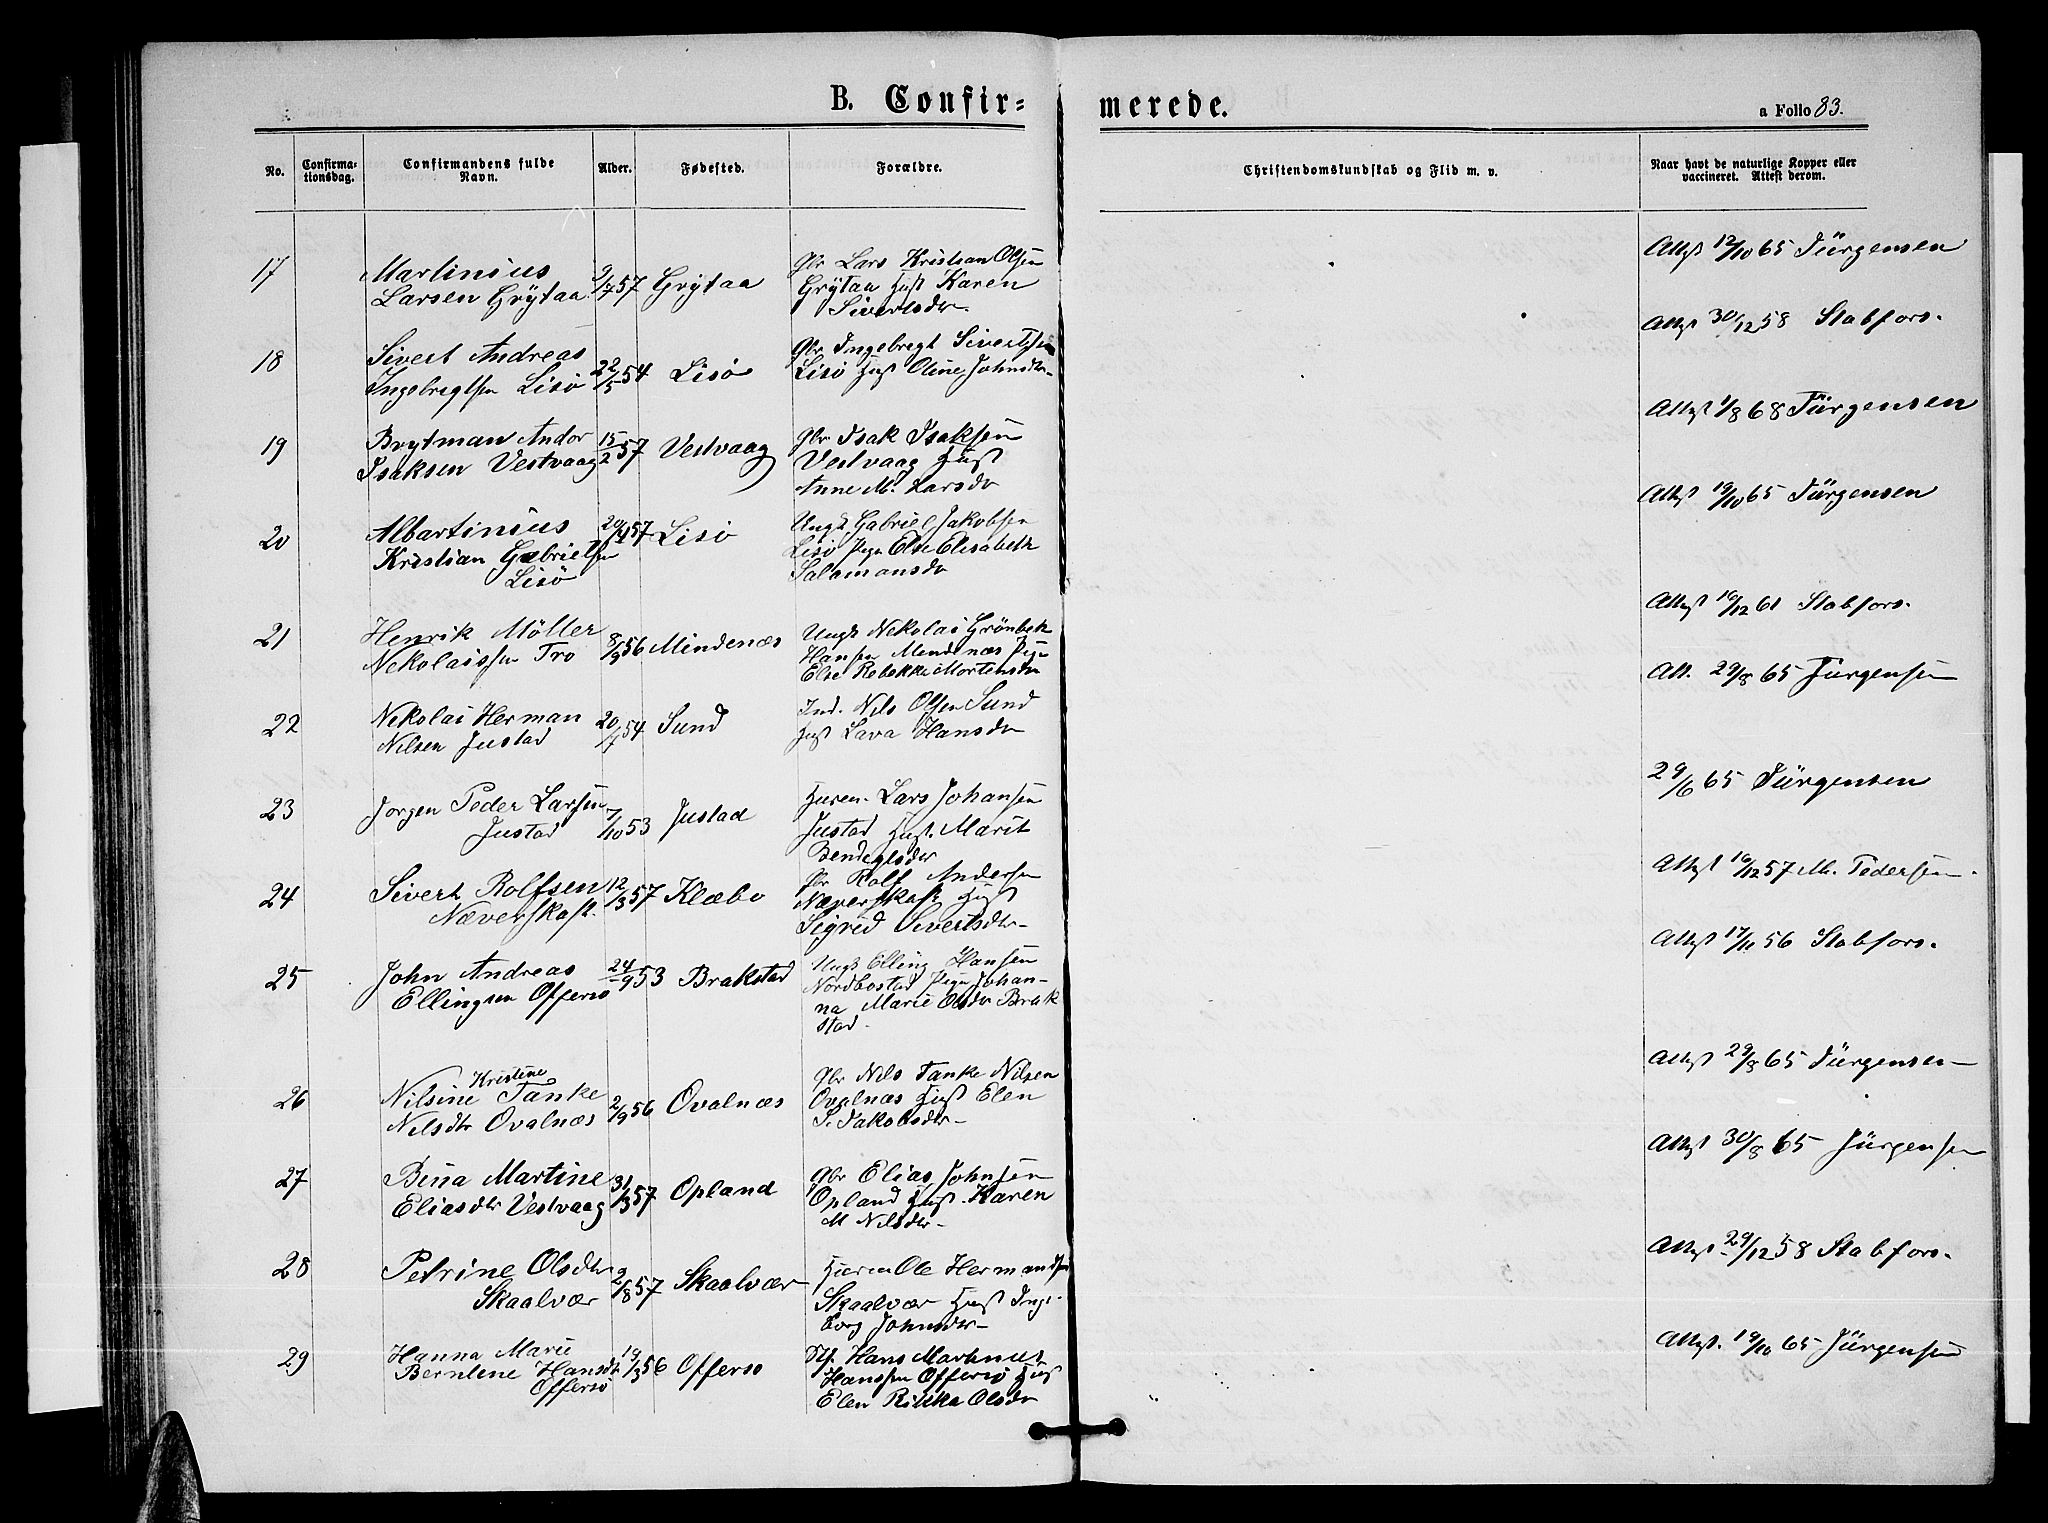 B. Confir=
merede.
a Folio 83.
No.
Confirma-
tionsdag.
Confirmandens fulde
Navn.
Alder.
Fødested.
Forældre.
Christendomskundskab og Flid m. v.
Naar havt de naturlige Kopper eller
vaccineret. Attest derom.
17 Martinius
Larsen Grÿtaa
9/7 57 Grÿtaa
Gbr Lars Kristian Olsen
Grÿtaa Hust Karen
Sivertsdtr.
Attest 12/10 65 Jürgensen
18 Sivert Andreas
Ingebregtsen Lisö
22/5 54 Lisö
Gbr Ingebregt Sivertsen
Lisö Hust Oline Johnsdtr
Attest 30/12 58 Stabfors.
19 Brytman Andor
Isaksen Vestvaag
15/2 57 Vestvaag
Gbr Isak Isaksen
Vestvaag Hust
Anne M. Larsdr
Attest 1/8 68 Jürgensen
20 Albartinius
Kristian Gabrielsen
Lisö
20/4 57 Lisö
Ungk Gabriel Jakobsen
Lisö Pige Else Elisabeth
Salamonsdr
Attest 19/10 65 Jürgensen
21 Henrik Möller
Nekolaissen Tro
8/9 56 Mindenæs
Ungk Nekolai Grönbek
Hansen Mendenæs Pige
Else Rebekka Mortensdr
Attest 16/12 61 Stabfors.
22 Nekolai Herman
Nilsen Justad
20/7 54 Sund
Ind. Nils Olsen Sund
Hust Lava Hansdr
Att. 29/8 65 Jürgensen
23 Jorgen Peder Larsen
Justad
7/10 53 Justad
Huren. Lars Johansen
Justad Hust. Marit
Bendegtsdtr
29/6 65 Jürgensen
24 Sivert Rolfsen
Næverskaft.
12/3 57 Klæbo
Gbr Rolf Andersen
Næverskaft Hust
Sigrid Sivertsdtr
Attest 16/12 57 M. Pedersen.
25 John Andreas
Ellingsen Offersö
24/9 53 Brakstad
Ungk Elling Hansen
Nordbostad Pige Johan-
na Marie Olsdr Brak
stad.
Attest 17/11 56 Stabfors.
26 Nilsine Kristine Tanke
Nilsdtr Ovalnæs
2/9 56 Ovalnæs
Gbr Nils Tanke Nilsen
Ovalnæs Hust Elen
S. Jakobsdtr
Attest 29/8 65 Jürgensen
27 Bina Martine
Eliasdtr Vestvaag
31/3 57 Opland
Gbr Elias Johnsen
Opland Hust. Karen
M Nilsdtr
Attest 30/8 65 Jürgensen
28 Petrine Olsdtr
Skaalvær
2/8 57 Skaalvær
Huren Ole Hermansen
Skaalvær Hust Inge-
borg Johnsdtr
Attest 29/12 58 Stabfors.
29 Hanna Marie
Berntine Hansdtr
Offersö
19/3 56 Offerso
Stf. Hans Martinus
Hanssen Offersö Hust
Elen Rikka Olsdr
Attest. 19/10 65 Jürgensen